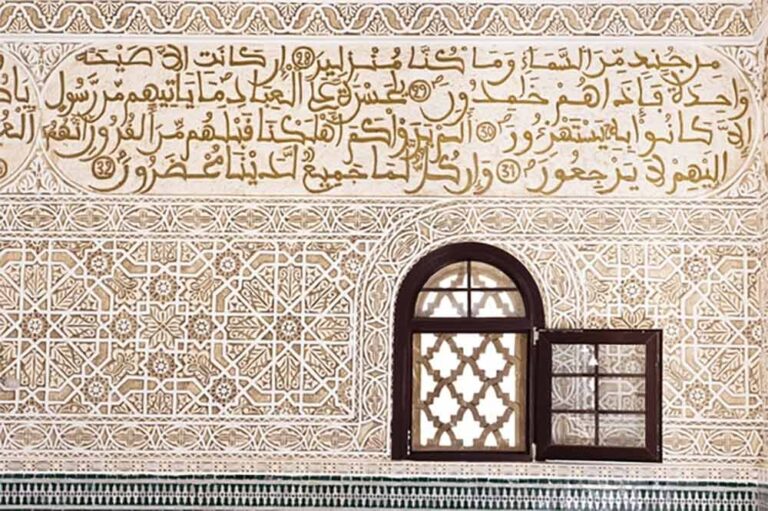 من جند من السماء وما كنا منزلين 28 إن كانت إلا صيحة
واحدة فإذا هم خمدون 29 يحسرة على العباد ما ياتيهم من رسول
إلا كانوا به يستهزءون 30 ألم يروا كم أهلكنا قبلهم من القرون أنهم
إليهم لا يرجعون 31 وإن كل لما جميع لدينا محضرون 32